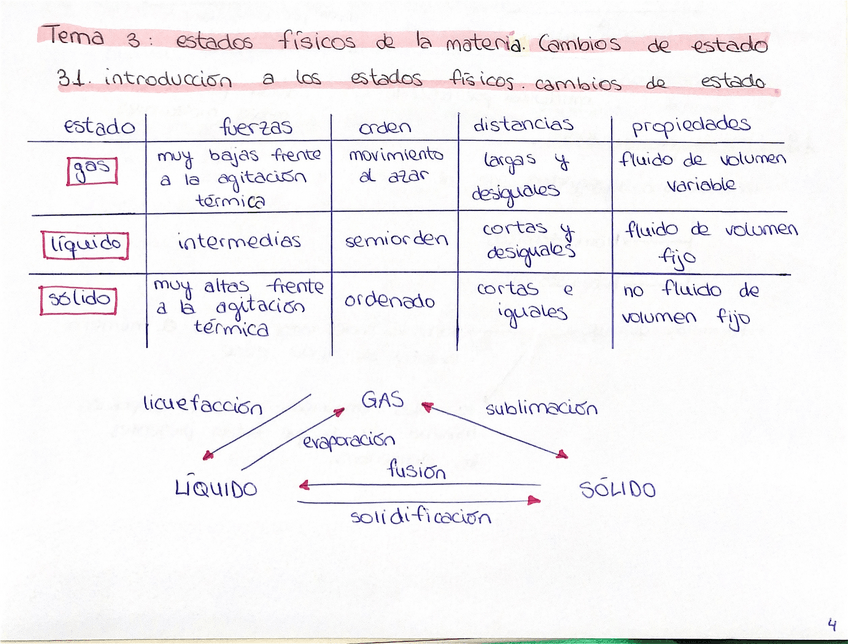 Tema 3: estados físicos de la materia. Cambios de estado
3.1. introducción a los estados físicos. cambios de estado.
estado fuerzas orden distancias propiedades
gas
muy bajas frente
a la agitación
térmica
movimiento
al azar
largas y
desiguales
fluido de volumen
variable
líquido
intermedias
semiorden
cortas y
desiguales
fluido de volumen
fijo
sólido
muy altas frente
a la agitación
térmica
ordenado
cortas e
iguales
no fluido de
volumen fijo
licuefacción
GAS
sublimación
evaporación
fusión
LÍQUIDO
SÓLIDO
solidificación
4